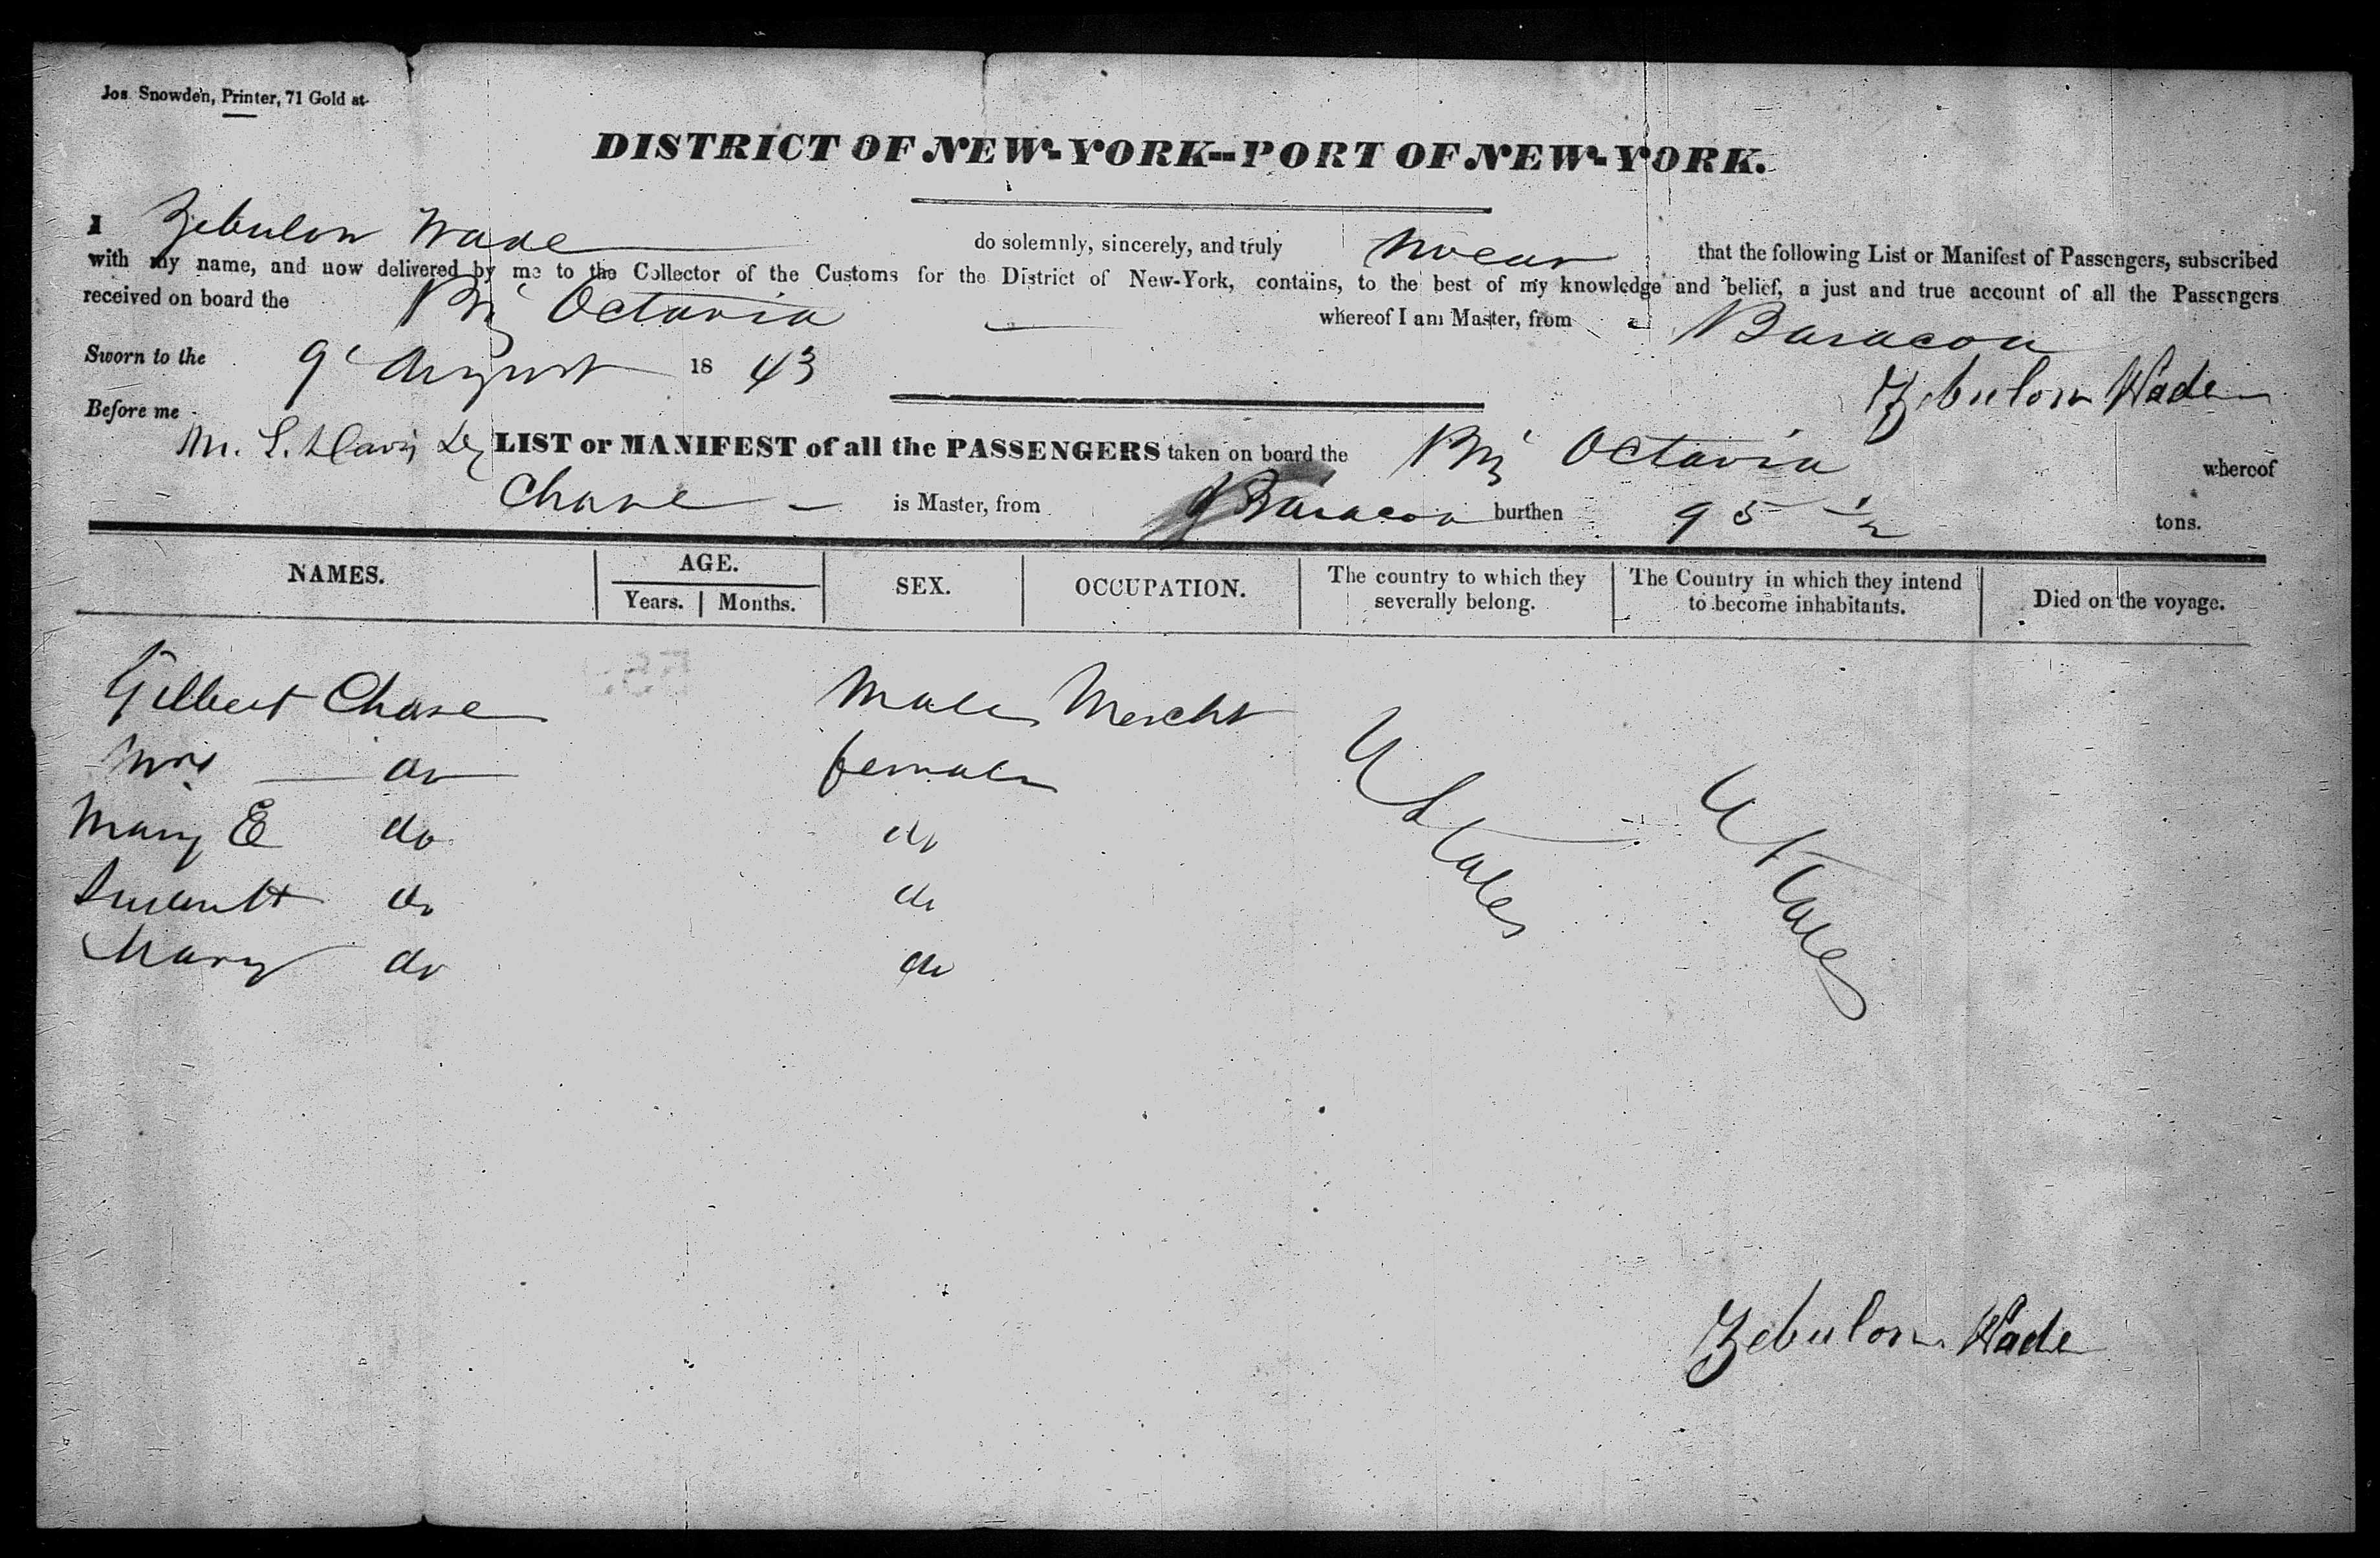 Jos. Snowden, Printer, 71 Gold st.
DISTRICT OF NEW-YORK--PORT OF NEW-YORK.
I Zebulon Wade do solemnly, sincerely, and truly swear that the following List or Manifest of Passengers, subscribed
with my name, and now delivered by me to the Collector of the Customs for the District of New-York, contains, to the best of my knowledge and belief, a just and true account of all the Passengers
received on board the Brig Octavia whereof I am Master, from Baracoa
Sworn to the 9 August 1843
Zebulon Wade
Before me
M. L. Davis
LIST or MANIFEST of all the PASSENGERS taken on board the Brig Octavia whereof
Chase is Master, from Baracoa burthen 95 1/2 tons.
NAMES. AGE. SEX. OCCUPATION. The country to which they severally belong. The Country in which they intend to become inhabitants. Died on the voyage.
Years. Months.
Gilbert Chase Male Mercht U States U States
Mrs do female
Mary E do do
Susan H do do
Mary do do
Zebulon Wade